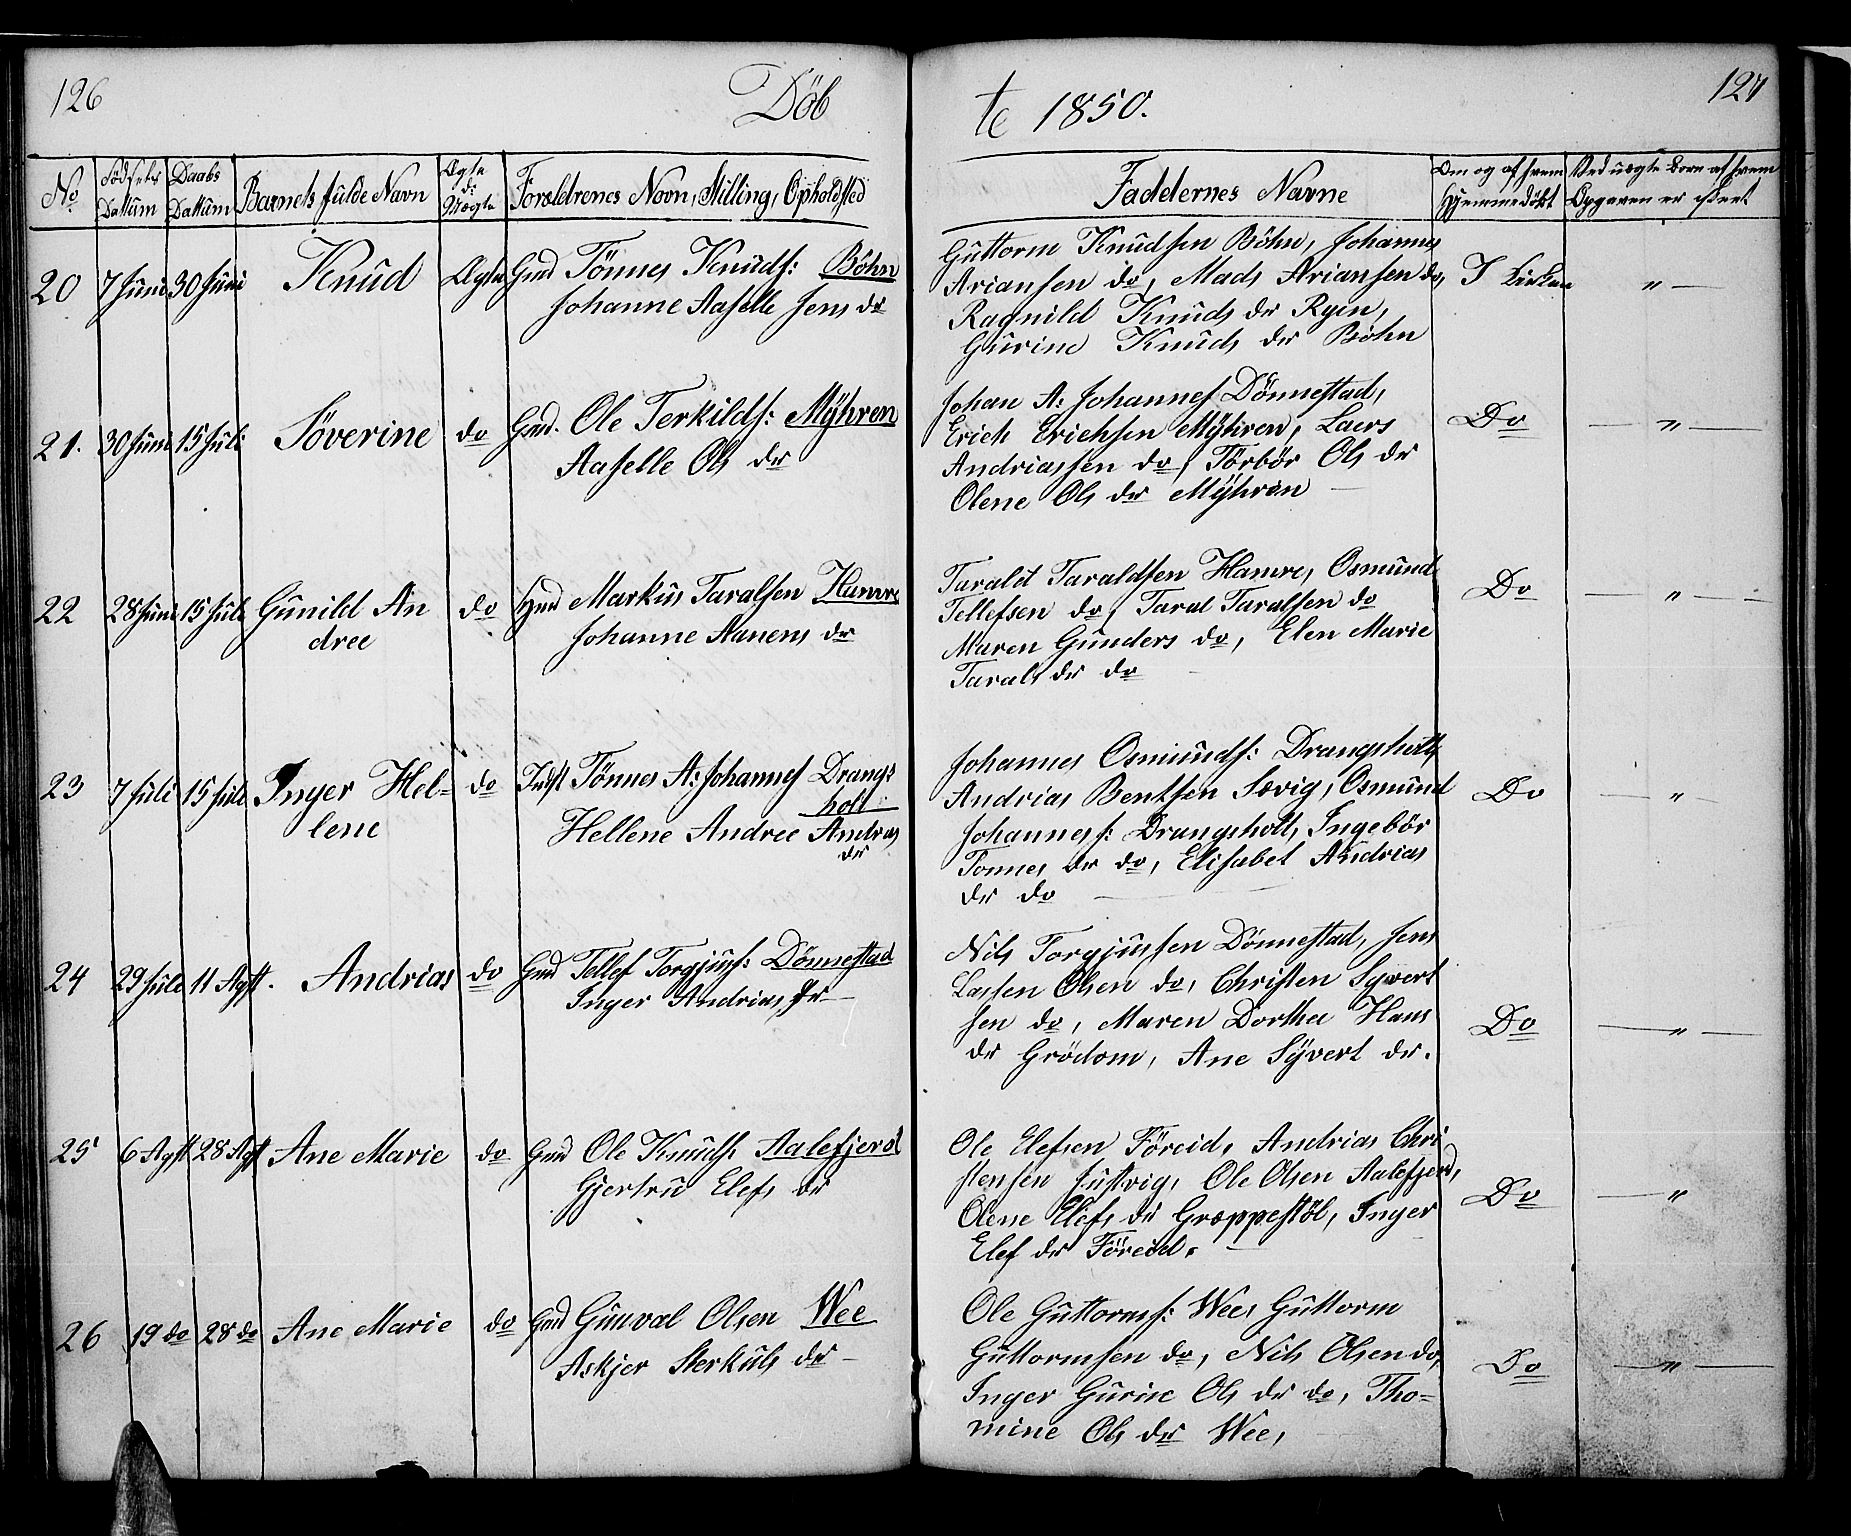 126
Döb
te 1850.
127
No
Födsels Dattum
Daabs Dattum
Barnets fulde Navn
Ægte d: Uægte
Forældrenes Navn, Stilling, Opholdsted
Faddernes Navne
Om og af hvem Hjemmedöbt
Ved uægte Börn af hvem Opgaven er skeet
20 7 Juni 30 Juni Knud Ægte Gmd Tönnes Knuds: Böhn
Johanne Aaselle Jens dr
Guttorm Knudsen Böhn, Johannes
Ariansen do, Mads Ariansen do,
Ragnild Knuds dr Ryen,
Gurine Knuds dr Böhn
I Kirken "
21. 30 Juni 15 Juli Söverine do Gmd. Ole Terkilds: Mÿhren
Aaselle Ols dr
Johan A: Johannes Dönnestad,
Erich Erichsen Mÿhren, Laers
Andriassen do, Törbör Ols dr
Olene Ols dr Mÿhren
Do "
22 28 Juni 15 Juli Gunild An
dree
do Hmd Markus Taralsen Hamre
Johanne Aanens dr
Tarald Taraldsen Hamre, Osmund
Tellefsen do, Taral Taralsen do
Maren Gunders do, Elen Marie
Tarals dr do
Do "
23 7 Juli 15 Juli Inger Hel-
lene
do Indst Tönnes A: Johannes Drangs:
holt
Hellene Andree Andrias
dr
Johannes Osmunds: Drangsholt,
Andrias Bentsen Sævig, Osmund
Johanness: Drangsholt, Ingebör
Tonnes dr do, Elisabet Andrias
dr do
Do "
24 29 Juli 11 Agst. Andrias do Gmd Tellef Torgjus: Dönnestad
Inger Andrias dr
Nils Torgjussen Dönnestad, Jens
Lassen Olsen do, Christen Syvert
sen do, Maren Dorthea Hans
dr Grödom, Ane Sÿvert dr.
Do "
25 6 Agst 28 Agst Ane Marie do Gmd Ole Knuds. Aalefjerd
Gjertru Elefs dr
Ole Elefsen Föreid, Andrias Chri
stensen Justvig, Ole Olsen Aalefjerd,
Olene Elefs dr Græppestöl, Inger
Elef dr Föreid.
Do "
26 19 do 28 do Ane Marie do Gmd Gunval Olsen Wee
Askjer Sterkuls dr
Ole Guttorms: Wee, Guttorm
Guttormsen do, Nils Olsen do,
Inger Gurine Ols dr do, Tho-
mine Ols dr Wee,
Do "